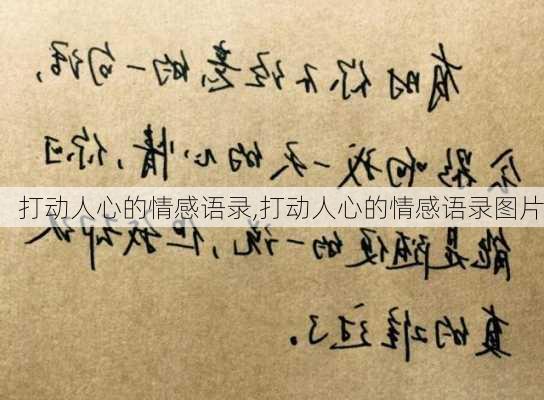 有时你不经意的一句话，
会影响我一天的心情，你可
打动人心的情感语录,打动人心的情感语录图片
能是随便的一说，但我却认
真的难过了。